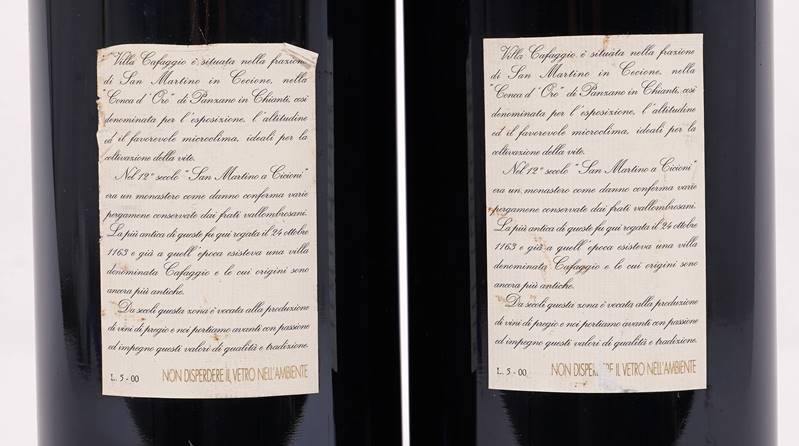 Villa Cafaggio è situata nella frazione
di San Martino in Cecione, nella
"Conca d'Oro" di Panzano in Chianti, così
denominata per l'esposizione, l'altitudine
ed il favorevole microclima, ideali per la
coltivazione della vite.
Nel 12° secolo "San Martino a Cicioni"
era un monastero come danno conferma varie
pergamene conservate dai frati vallombrosani.
La più antica di queste fu qui rogata il 24 ottobre
1163 e già a quell'epoca esisteva una villa
denominata Cafaggio e le cui origini sono
ancora più antiche.
Da secoli questa zona è vocata alla produzione
di vini di pregio e noi portiamo avanti con passione
ed impegno questi valori di qualità e tradizione.
L. 5-00 NON DISPERDERE IL VETRO NELL'AMBIENTE
Villa Cafaggio è situata nella frazione
di San Martino in Cecione, nella
"Conca d'Oro" di Panzano in Chianti, così
denominata per l'esposizione, l'altitudine
ed il favorevole microclima, ideali per la
coltivazione della vite.
Nel 12° secolo "San Martino a Cicioni"
era un monastero come danno conferma varie
pergamene conservate dai frati vallombrosani.
La più antica di queste fu qui rogata il 24 ottobre
1163 e già a quell'epoca esisteva una villa
denominata Cafaggio e le cui origini sono
ancora più antiche.
Da secoli questa zona è vocata alla produzione
di vini di pregio e noi portiamo avanti con passione
ed impegno questi valori di qualità e tradizione.
L. 5-00 NON DISPERDERE IL VETRO NELL'AMBIENTE